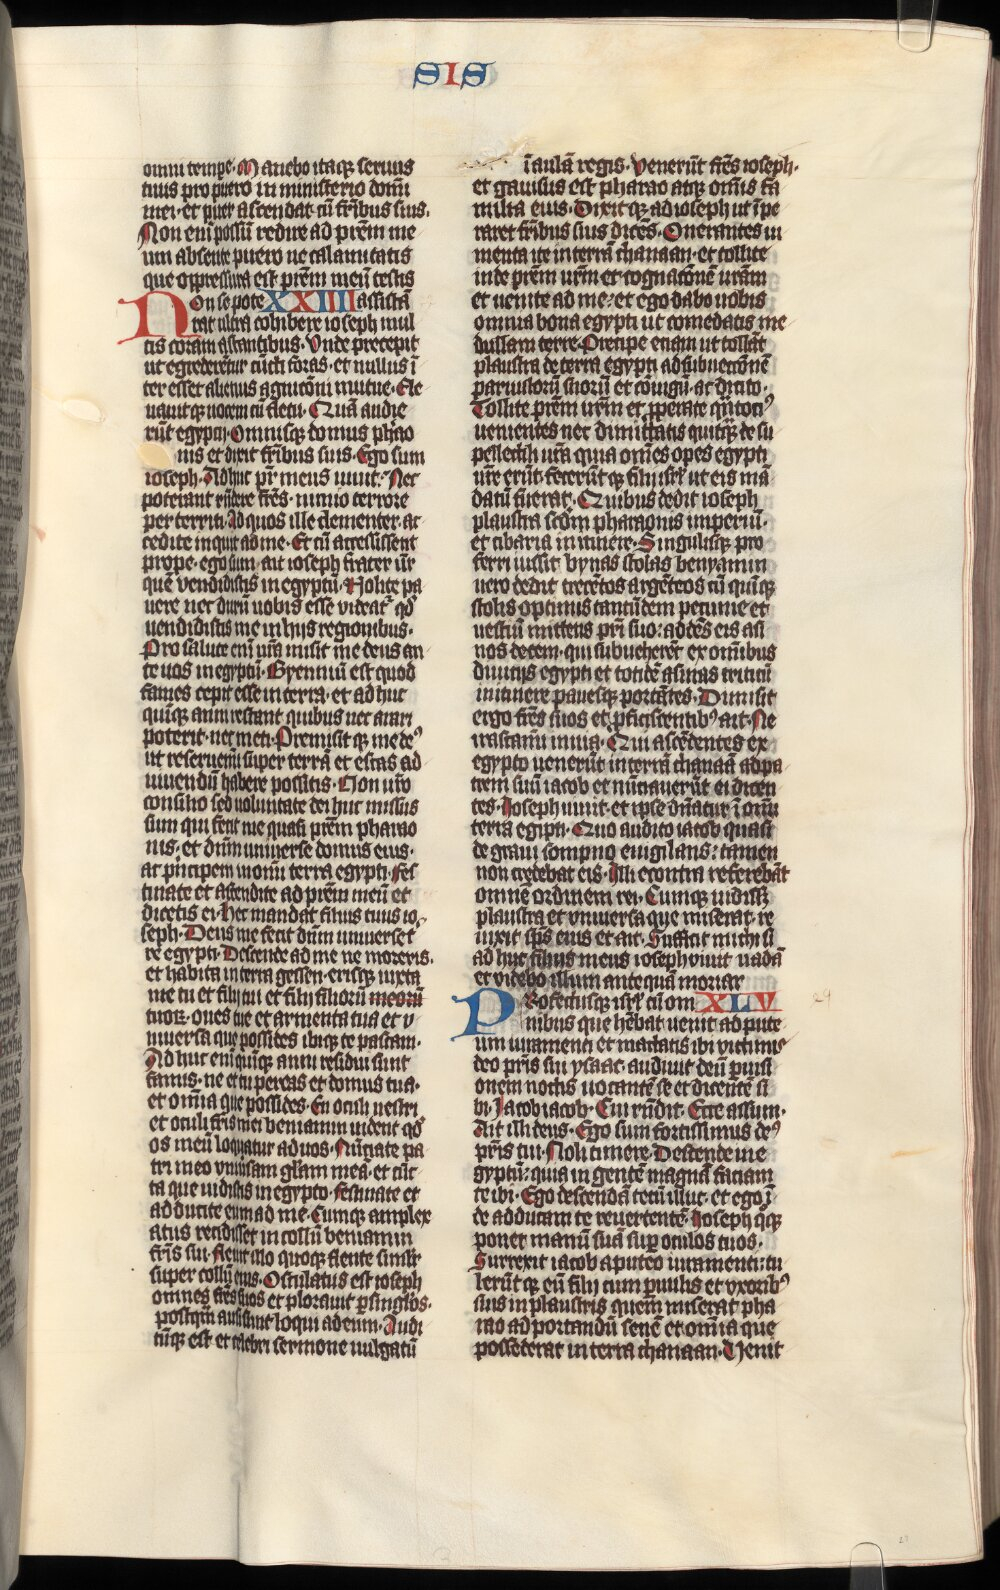 SIS
omni tempe. Manebo itaqꝫ seruus
tuus pro puero in ministerio domī
mei. et puer ascendat cū fr̄ibus suis.
Non eni possū redire ad pr̄em me
um absente puero ne calamitatis
que oppressura est pr̄em meū testis
Non se pote XXIIII assistā
rat ultra cohibere ioseph mul
tis coram astantibus. Unde precepit
ut egrederētur cūcti foras. et nullus ī
ter esset alienus agnicōni mutue. Ele
uauitqꝫ uocem cū fletu. Quā audie
rūt egyptij. Omnisqꝫ domus pharao
nis et dixit fr̄ibus suis. Ego sum
ioseph. Adhuc pr̄ meus uiuit. Nec
poterant rn̄dere fr̄es. nimio terrore
per territi. Ad quos ille clementer. ac
cedite inquit ad me. Et cū accessissent
prope. ego sum ait ioseph frater ur̄
quē vendidistis in egyptū. Nolite pa
uere nec durū uobis esse videatr qd̄
uendidistis me in hijs regionibus.
Pro salute eni ur̄a misit me deus an
te uos in egyptū. Byenniū est quod
fames cepit esse in terra. et ad huc
quīqꝫ anni restant quibus nec arari
poterit. nec meti. Premisitqꝫ me deꝰ
ut reseruemī super terrā et escas ad
uiuendū habere possitis. Non ur̄o
consilio sed voluntate dei huc missus
sum qui fecit me quasi pr̄em pharao
nis. et dn̄m uniuerse domus eius.
ac pn̄cipem in omī terra egypti. Fes
tinate et ascendite ad pr̄em meū et
dicetis ei. Hec mandat filius tuus io
seph. Deus me fecit dn̄m uniuerse t
re egypti. Descende ad me ne moreris.
et habita in terra gessen. erisqꝫ iuxta
me tu et filij tui et filij filiorū meorū
tuoꝝ. oues tue et armenta tua et v
niuersa que possides ibiqꝫ te pascam.
Ad huc eni quīqꝫ anni residui sunt
famis. ne et tu pereas et domus tua.
et omīa que possides. En oculi uestri
et oculi fr̄is mei beniamin uident qd̄
os meū loquatur ad uos. Nūciate pa
tri meo vniuersam glam meā. et cūc
ta que uidistis in egypto. festinate et
adducite eum ad me. Cumqꝫ amplex
atus recidisset in collū beniamin
fr̄is sui. fleuit illo quoqꝫ flente similr
super collū eius. Osculatus est ioseph
omnes fr̄es suos et plorauit ꝑ singlos.
postqm̄ ausi sunt loqui ad eum. Audi
tūqꝫ est et celebri sermone uulgatū
ī aulā regis. Venerūt fr̄es ioseph.
et gauisus est pharao atqꝫ omīs fa
milia eius. Dixitqꝫ ad ioseph ut īpe
raret fr̄ibus suis dices. Onerantes iu
menta ite in terrā chanaan. et tollite
inde pr̄em ur̄m et cognatōnē ur̄am
et uenite ad me. et ego dabo uobis
omnia bona egypti ut comedatis me
dullam terre. Precipe etiam ut tollāt
plaustra de terra egypti ad subuectōnē
paruuloru suorū et coniugū. ac dicito.
Tollite pr̄em ur̄m et ꝓperate qn̄tociꝰ
uenientes nec dimittatis quicqꝫ de su
pellectili ur̄a quia omēs opes egypti
ur̄e erūt. fecerūtqꝫ filij isrl̄ ut eis mā
datū fuerat. Quibus dedit ioseph
plaustra scdm̄ pharaonis imperiū.
et cibaria in itinere. Singulisqꝫ pro
ferri iussit bynas stolas benyamin
uero dedit trecētos argēteos cū quīqꝫ
stolis optimis tantūdem pecunie et
uestiū mittens pri suo. addēs eis asi
nos decem. qui subueherēt ex omībus
diuicijs egypti et totidē asinas triticū
in itinere panesqꝫ portātes. Dimisit
ergo fr̄es suos et ꝓficiscentibꝰ ait. Ne
irascami in uia. Qui ascēdentes ex
egypto uenerūt in terrā chanaā ad pa
trem suū iacob et nūtiauerūt ei dicen
tes. Ioseph uiuit. et ipse dn̄atur ī omī
terra egipti. Quo audito iacob quasi
de graui sompno euigilans: tamen
non credebat eis. Illi econtra referebāt
omnē ordinem rei. Cumqꝫ uidissꝫ
plaustra et vniuersa que miserat. re
uixit sps̄ eius et ait. Sufficit michi si
ad huc filius meus ioseph uiuit uadā
et videbo illum antequā moriar
Profectusqꝫ isrl̄ cū om XLV
nibus que hēbat uenit ad pute
um iuramenti et mactatis ibi victimis
deo pr̄is sui ysaac. audiuit deū ꝑ uisi
onem noctis uocantē se et dicentē si
bi. Iacob iacob. Cui rn̄dit. Ecce assum.
Ait illi deus. Ego sum fortissimus deꝰ
pr̄is tui. Noli timere. Descende in e
gyptū: quia in gentē magnā faciam
te ibi. Ego descendā tecū illuc. et ego ī
de adducam te reuertentē. Ioseph qqꝫ
ponet manū suā suꝑ oculos tuos.
Surrexit iacob a puteo iuramenti: tu
lerūtqꝫ eū filij cum ꝑuulis et vxoribꝰ
suis in plaustris quem miserat pha
rao ad portandū senē et omīa que
possederat in terra chanaan. Venit